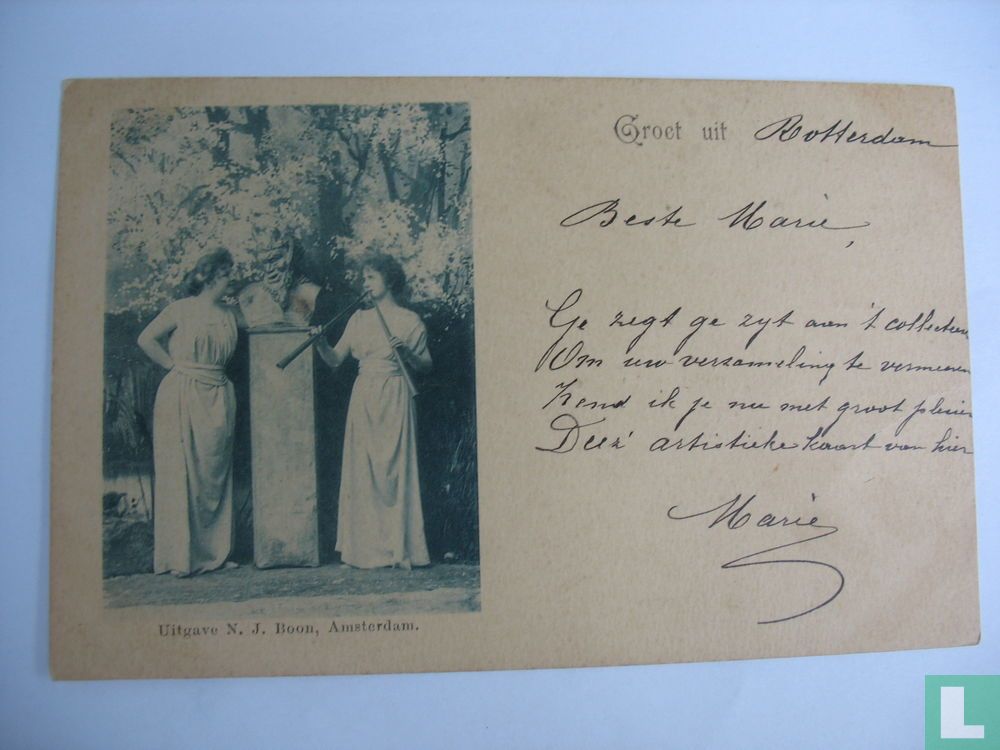 Groet uit Rotterdam
Beste Marie,
Ge zegt ge zyt aan 't collecteeren
Om uw verzameling te vermeeren
Zend ik je nu met groot plezier
Deez' artistieke kaart van hier
Marie
Uitgave N. J. Boon, Amsterdam.
L